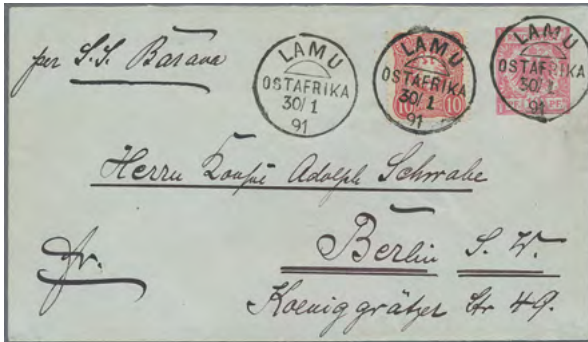 per S.S. Barawa
LAMU
OSTAFRIKA
30/1
91
LAMU
OSTAFRIKA
30/1
91
10 10
LAMU
OSTAFRIKA
30/1
91
Herrn Adolph Schwabe
Berlin S. W.
Koeniggrätzer Str 49.
Fr.